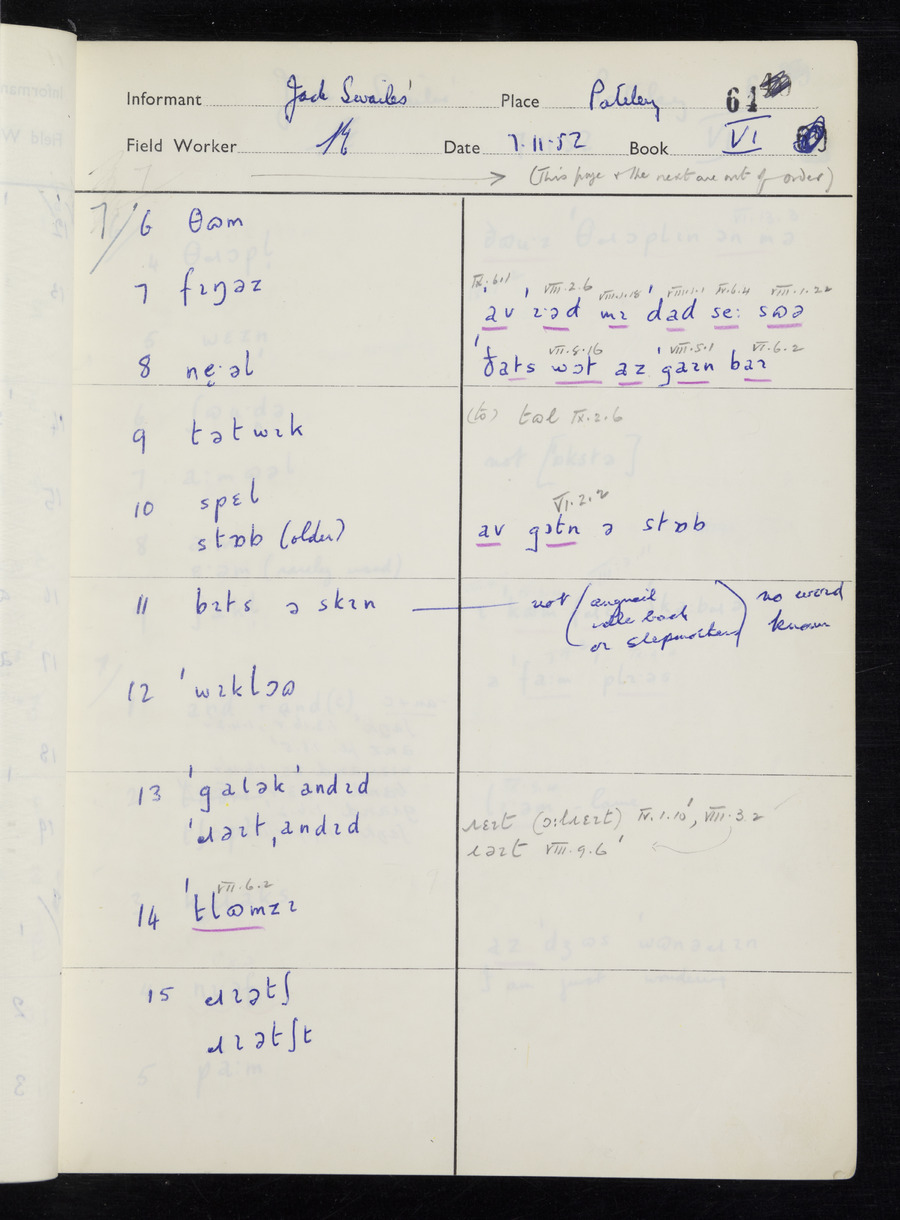 Informant Jack Swailes' Place Pateley 61
Field Worker Date 7.11.52 Book VI
(This page & the next are out of order)
7/ 6 θɷm
7 fɪŋəz
IX.6.1 VIII.2.6 VIII.1.18 VIII.1.1 IV.6.4 VIII.1.22
ˈav ˈɪəd mɪ ˈdad se: sɷə
8 ne̜·əl
VII.8.16 VIII.5.1 VI.6.2
ˈðats wɔt az ˈgaɪn baɪ
9 tətwɪk
(to) tɷl IX.2.6
10 spɛl
stɒb (older)
VI.2.2
av gɔtn ə stɒb
11 bɪts ə skɪn
not (angnail
idle back
or stepmother) no word
known
12 ˈwɪklɔɷ
13 ˈgalək ˈandɪd
ˈɹəɪt ˌandɪd
ɹɛɪt (ɔ:ɹɛɪt) IV.1.10', VIII.3.2
ɹəɪt VIII.9.6'
VII.6.2
14 ˈtlɷmzɪ
15 ɹɪətʃ
ɹɪətʃt